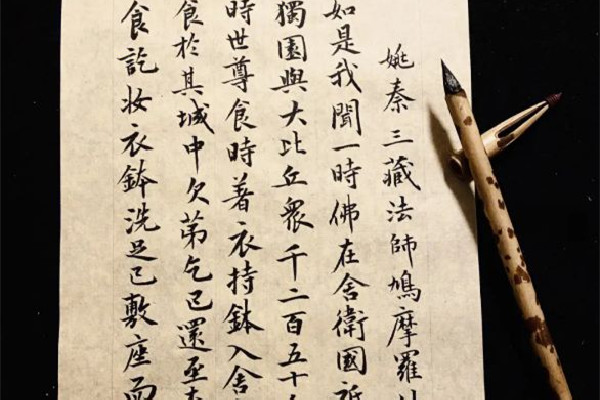 姚秦三藏法師鳩摩羅
如是我聞一時佛在舍衛國祇
獨園與大比丘衆千二百五十
時世尊食時著衣持鉢入舍
食於其城中次第乞已還至本
食訖收衣鉢洗足已敷座而